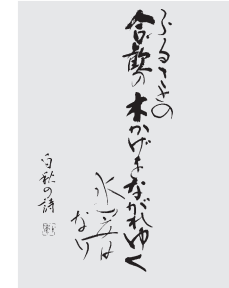 ふるさとの
合歓の木かげをながれゆく
水
は
なり
白秋の詩